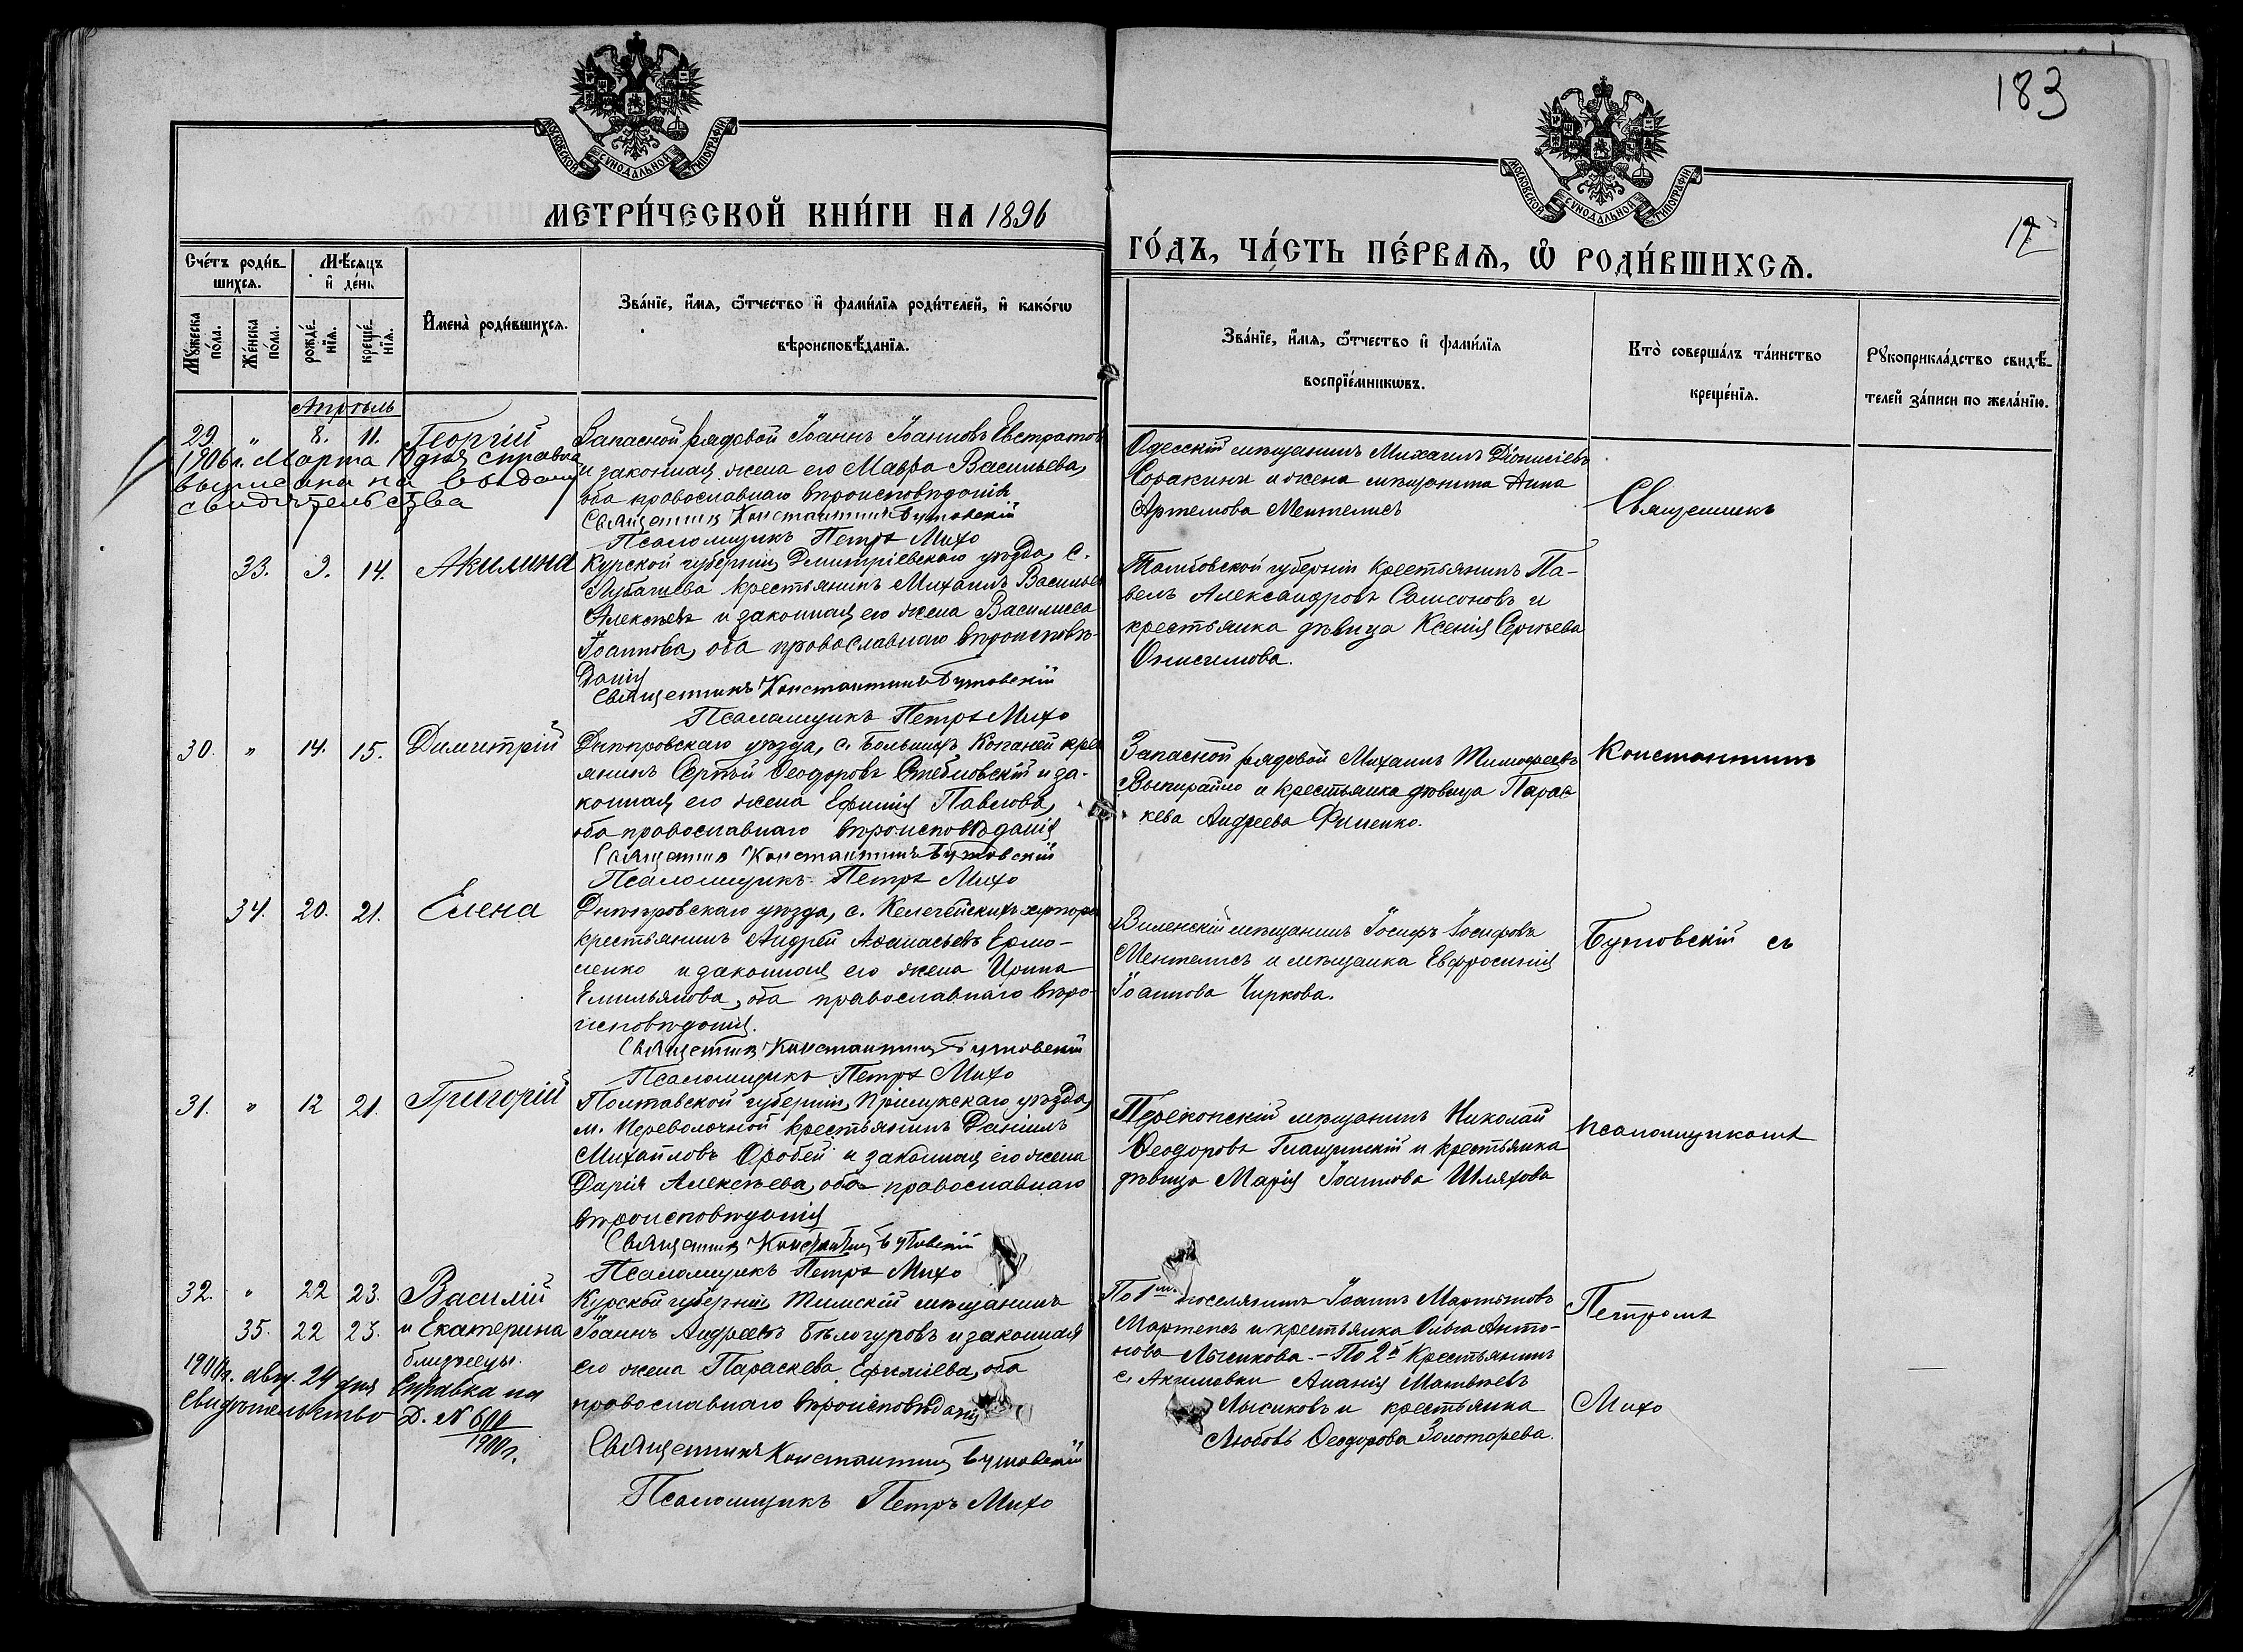 183
МОСКОВСКОЙ СѴНОДАЛЬНОЙ ТИПОГРАФІИ
МОСКОВСКОЙ СѴНОДАЛЬНОЙ ТИПОГРАФІИ
МЕТРИ́ЧЕСКОЙ КНИ́ГИ НА 1896
ГО́ДЪ, ЧА́СТЬ ПЕ́РВАѦ, Ѡ҆ РОДИ́ВШИХСѦ.
12
Сче́тъ роди́в-
шихсѧ.
Мѣ́сѧцъ
и҆ де́нь
Мꙋ́жеска
по́ла.
Же́нска
по́ла.
рожде́-
нїѧ.
креще́-
нїѧ.
И҆мена̀ роди́вшихсѧ.
Зва́нїе, и҆́мѧ, ѻ҆́тчество и҆ фами́лїѧ роди́телей, и҆ како́гѡ
вѣроисповѣ́данїѧ.
Зва́нїе, и҆́мѧ, ѻ҆́тчество и҆ фами́лїѧ
воспрїе́мникѡвъ.
Кто̀ соверша́лъ та́инство
креще́нїѧ.
Рꙋкоприкла́дство свидѣ́-
телей за́писи по жела́нїю.
Апрѣль
29. " 8. 11. Георгій
1906 г. Марта 10 дня справка
выписана на выдачу
свидѣтельства
Запасной рядовой Іоаннъ Іоанновъ Евстратов
и законная жена его Мавра Васильева,
оба православнаго вѣроисповѣданія
Священникъ Константинъ Бутовскій
Псаломщикъ Петръ Михо
Одесскій мѣщанинъ Михаилъ Діонисіевъ
Сорокинъ и жена мѣщанина Анна
Артемова Ментелисъ
Священникъ
33. 9. 14. Акилина
Курской губерніи, Дмитріевскаго уѣзда, с.
крестьянинъ Михаилъ Васильев
Алексѣевъ и законная его жена Василиса
Іоаннова, оба православнаго вѣроисповѣ-
данія
Священникъ Константинъ Бутовскій
Псаломщикъ Петръ Михо
Тамбовской губерніи крестьянинъ Па-
велъ Александровъ Самсоновъ и
крестьянка дѣвица Ксенія Сергѣева
Онисимова.
30. " 14. 15. Димитрій
Днѣпровскаго уѣзда, с. Большихъ Копаней крес
янинъ Сергѣй Ѳеодоровъ Стебловскій и за-
конная его жена Ефимія Павлова,
оба православнаго вѣроисповѣданія
Священникъ Константинъ Бутовскій
Псаломщикъ Петръ Михо
Запасной рядовой Михаилъ Тимофеевъ
и крестьянка дѣвица Парас
кева Андреева Фименко.
Константинъ
34. 20. 21. Елена
Днѣпровскаго уѣзда, с. Келегейскихъ хуторов
крестьянинъ Андрей Аѳанасьевъ Ермо-
ленко и законная его жена Ирина
Емильянова, оба православнаго вѣро-
исповѣданія.
Священникъ Константинъ Бутовскій
Псаломщикъ Петръ Михо
Виленскій мѣщанинъ Іосифъ Іосифовъ
Ментелисъ и мѣщанка Евфросинія
Іоаннова Чиркова.
Бутовскій съ
31. " 12 21. Григорій
Полтавской губерніи, Прилукскаго уѣзда,
м. Переволочной крестьянинъ Даніилъ
Михайловъ Оробей и законная его жена
Дарія Алексѣева, оба православнаго
вѣроисповѣданія
Священникъ Константинъ Бутовскій
Псаломщикъ Петръ Михо
Перекопскій мѣщанинъ Николай
Ѳеодоровъ и крестьянка
дѣвица Марія Іоаннова Шляхова
псаломщикомъ
32. " 22 23. Василій
35. 22 23. и Екатерина
близнецы.
авг. 29 дня Справка на
свидѣтельство Д. N 600
1900 г.
Курской губерніи Тимскій мѣщанинъ
Іоаннъ Андреевъ Бѣлогуровъ и законная
его жена Параскева Ефиміева, оба
православнаго вѣроисповѣданія
Священникъ Константинъ Бутовскій
Псаломщикъ Петръ Михо
По 1му поселянинъ Іоаннъ Мартыновъ
Мартенсъ и крестьянка Ольга Анто-
нова Лысикова. – По 2й крестьянинъ
с. Акимовки Ананія Матвѣевъ
Лысиковъ и крестьянка
Любовь Ѳеодорова Золотарева.
Петромъ
Михо